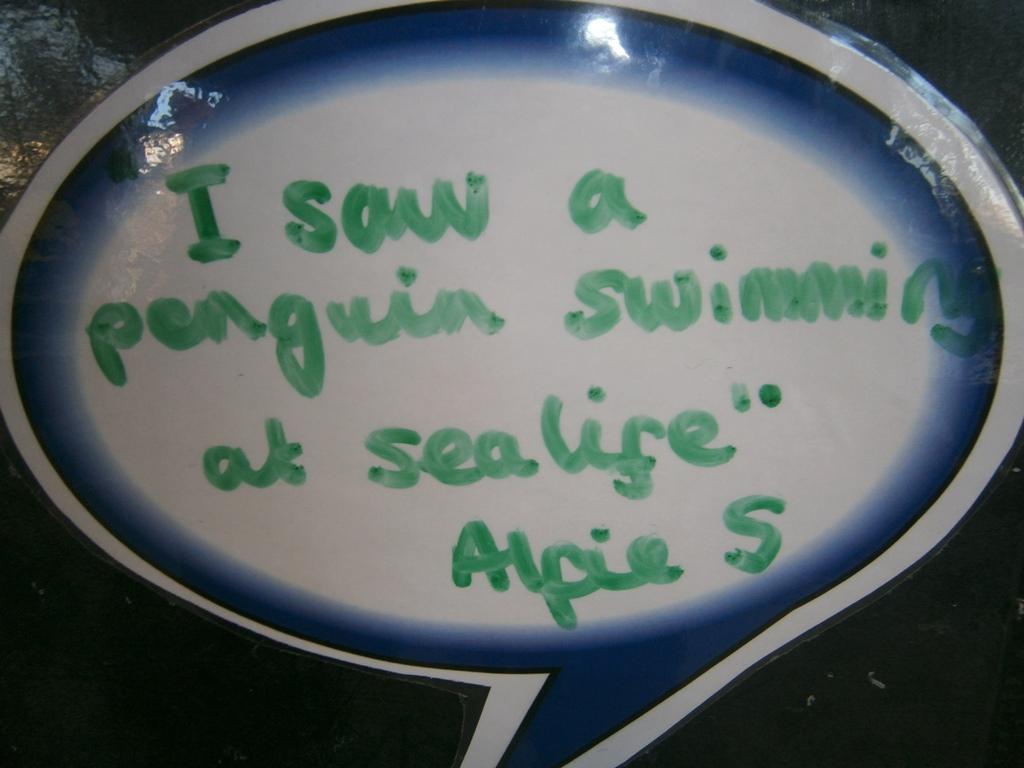 I saw a
penguin swimming
at sealife"
Alfie S